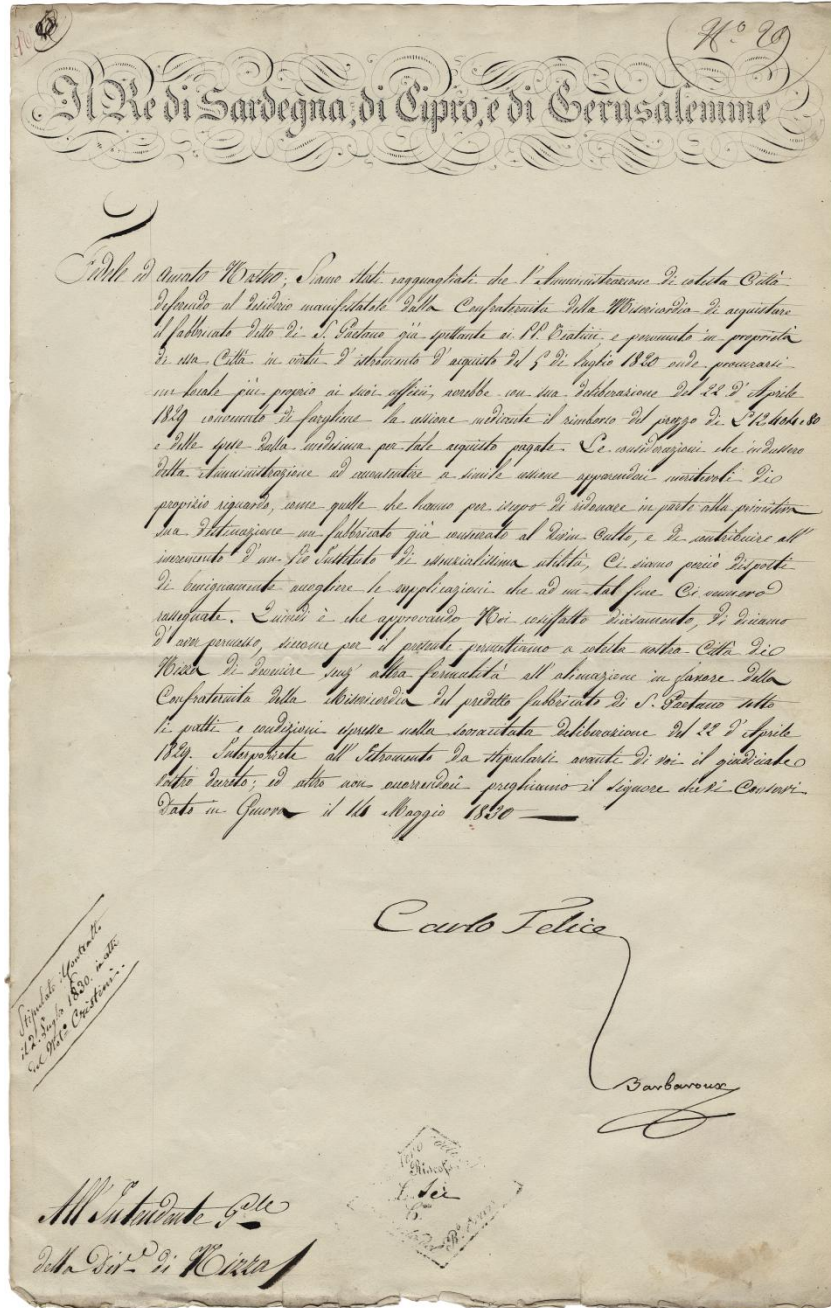 Nº 29
Il Re di Sardegna, di Cipro, e di Gerusalemme
Fedele ed Amato Nostro; Siamo stati ragguagliati che l'Amministrazione di cotesta Città
deferendo al desiderio manifestatole dalla Confraternita della Misericordia di acquistare
il fabbricato detto di S. Gaetano già spettante ai PP. Teatini, e pervenuto in proprietà
di essa Città in virtù d'istromento d'acquisto del 5 di luglio 1820 onde procurarsi
un locale più proprio ai suoi uffizi, avrebbe con sua deliberazione del 22 d'Aprile
1829 consentito di fargliene la cessione mediante il rimborso del prezzo di
e delle spese dalla medesima per tale acquisto pagate. Le considerazioni che indussero
detta Amministrazione ad acconsentire a simile cessione apparendoci meritevoli di
propizio riguardo, come quelle che hanno per iscopo di ridonare in parte alla primitiva
sua destinazione un fabbricato già consecrato al divin Culto, e di contribuire all'
incremento d'un Pio Instituto di essenzialissima utilità, Ci siamo perciò disposti
di benignamente accogliere le supplicazioni che ad un tal fine Ci vennero
rassegnate. Quindi è che approvando Noi cosiffatto divisamento, Vi diciamo
d'aver permesso, siccome per il presente permettiamo a cotesta nostra Città di
Nizza di devenire senz'altra formalità all'alienazione in favore della
Confraternita della Misericordia del predetto fabbricato di S. Gaetano sotto
li patti e condizioni espresse nella sovracitata deliberazione del 22 d'Aprile
1829. Interporrete all'Istromento da stipularsi avante di voi il giudiciale
vostro decreto; ed altro non occorrendoci preghiamo il Signore che Vi Conservi
Dato in Genova il 14 Maggio 1830
Carlo Felice
Barbaroux
Stipulato il Contratto
il 2 Luglio 1830. in atti
del Notº Cristini.
Riscos
L. Sei
All'Intendente Gle
della Divne di Nizza